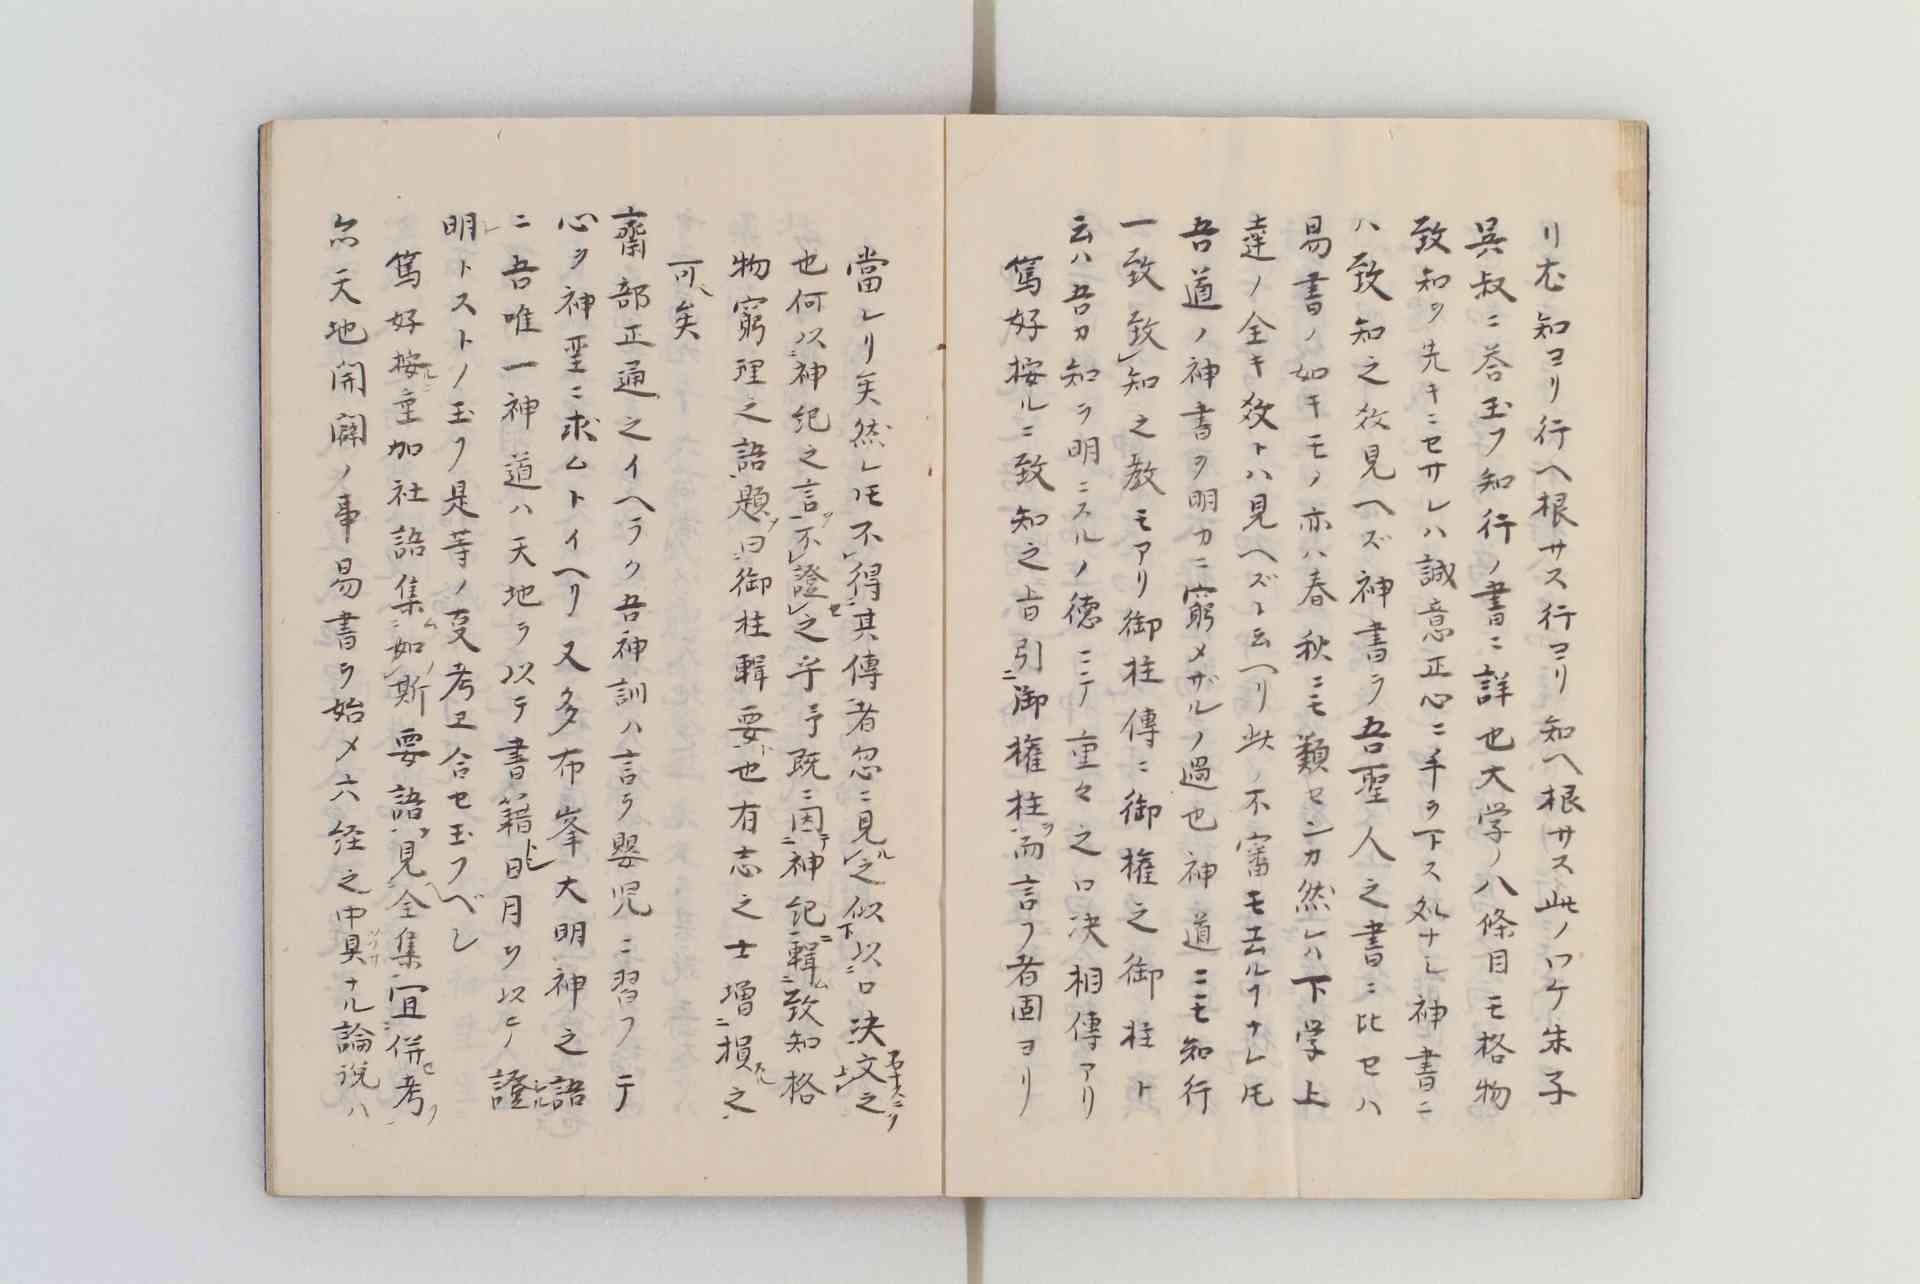 リ尤知ヨリ行ヘ根サス行ヨリ知ヘ根サス此ノワケ朱子
呉叔ニ荅玉フ知行ノ書ニ詳也大学ノ八條目モ格物
致知ヲ先キニセサレハ誠意正心ニ手ヲ下ス処ナシ神書ニ
ハ致知之教見ヘズ神書ヲ吾聖人之書ニ比セハ
易書ノ如キモノ亦ハ春秋ニモ類センカ然レハ下学上
達ノ全キ教トハ見ヘズト云ヘリ此ノ不審モ去ルヿナレ𪜈
吾道ノ神書ヲ明カニ窮メザルノ過也神道ニモ知行
一致致知之教モアリ御柱傳ニ御權之御柱ト
云ハ吾カ知ラ明ニスルノ徳ニテ重々之口决相傳アリ
篤好按ルニ致知之旨引御權柱而言フ者固ヨリ
當レリ矣然レ𪜈不得其傳者忽ニ見之似以口决文之
也何以神紀之言不證之乎予既ニ因神紀輯致知格
物窮理之語題曰御柱輯要也有志之士増損之
可矣
齋部正通之イヘラク吾神訓ハ言ラ嬰児ニ習フテ
心ヲ神聖ニ求ムトイヘリ又多布峯大明神之語
ニ吾唯一神道ハ天地ラ以テ書籍トシ日月ヲ以テ證
明トストノ玉フ是等ノ㕝考ヱ合セ玉フベシ
篤好按垂加社語集如斯要語見全集宜併考
尒天地開闢ノ事易書ラ始メ六経之中具ナル論説ハ